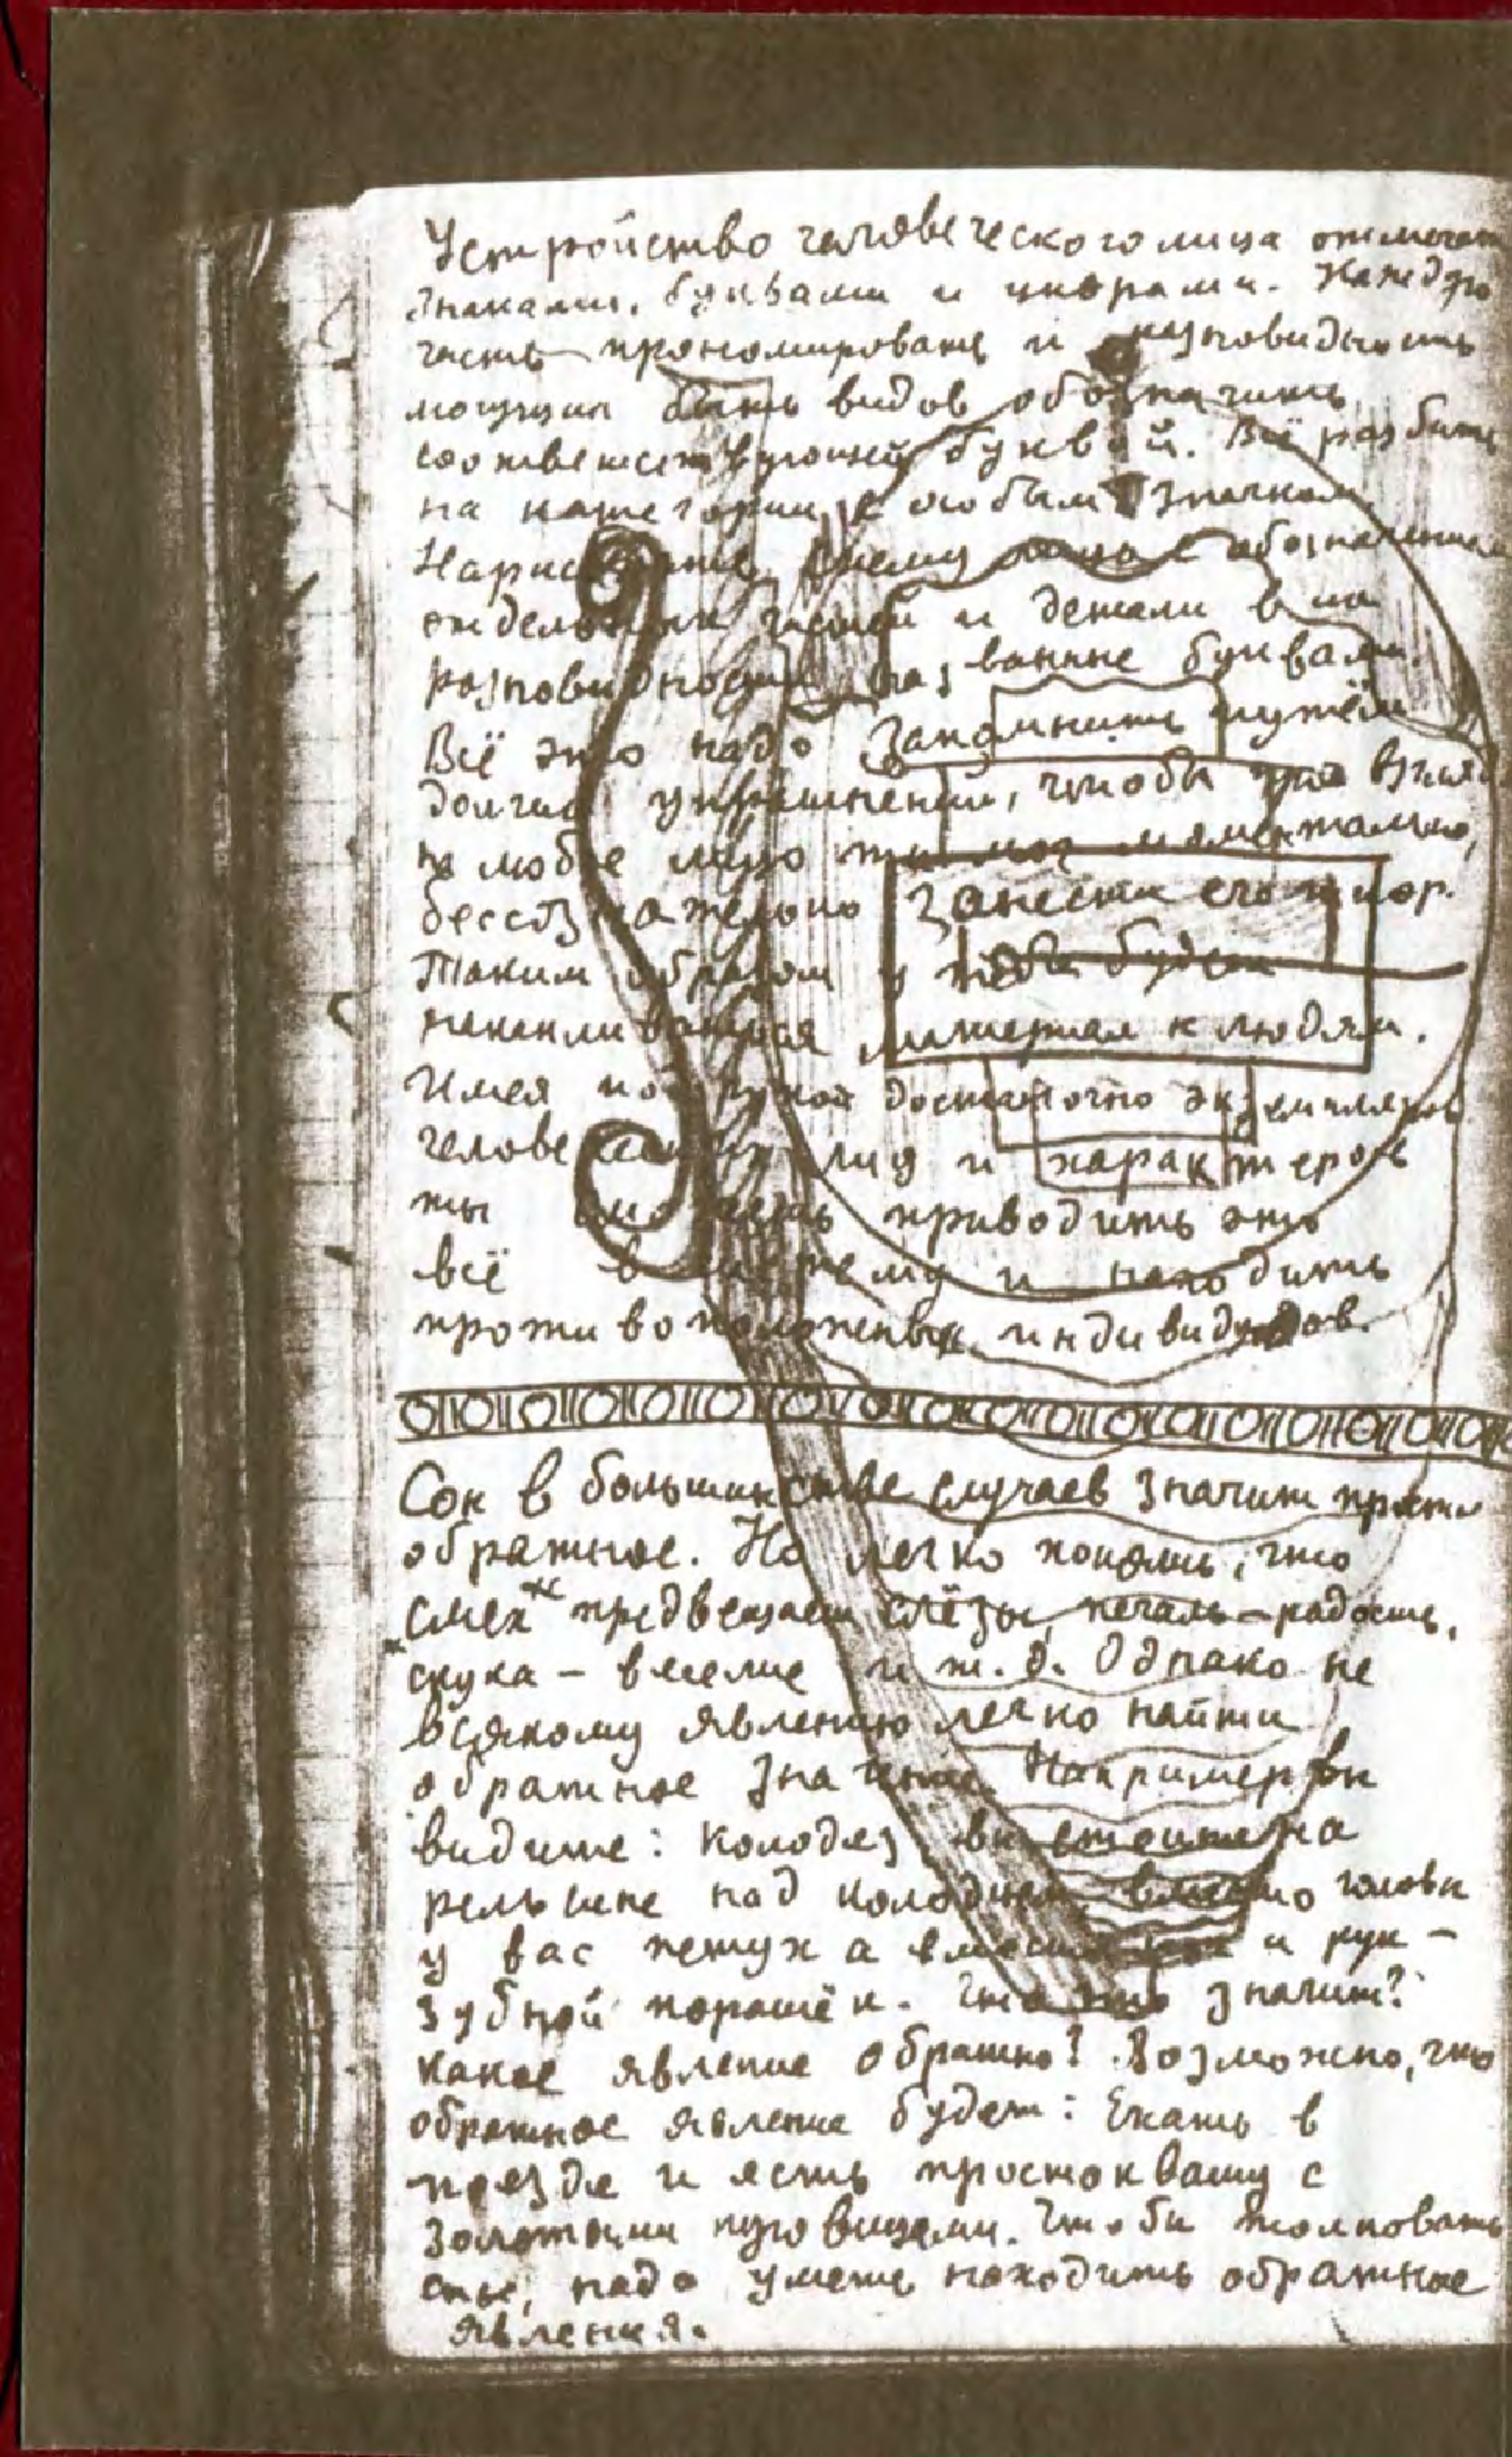 Устройство человеческого лица отмечать
знаками, буквами и цифрами. Каждую
часть прономировать и разновидность
могущих быть видов обозначить
соответствующей буквой. Всё разбить
на категории с особым значком
Нарисовать схему лица с обозначением
отдельных частей и детали в их
разновидности названные буквами.
Всё это надо запомнить путём
долгих упражнений, чтобы при взгляде
на любое лицо ты мог моментально,
бессознательно занести его
Таким образом у тебя будет
материал к людям.
Имея под рукой достаточно экземпляров
человеческих лиц и характеров
ты сможешь приводить это
всё в систему и находить
противоположных индивидумов.
Сон в большинстве случаев значит прямо
обратное. Но легко понять, что
смех предвещает слёзы, печаль – радость,
скука – веселие и т. д. Однако не
всякому явлению легко найти
обратное значение. Например вы
видите: колодез, вы стоите на
рельсине над колодцем, вместо головы
у вас петух а вместо ног и рук –
зубной порошёк. Что это значит?
какое явление обратно? Возможно, что
обратное явление будет: Ехать в
поезде и есть простоквашу с
золотыми пуговицами. Чтобы толковать
сны, надо уметь находить обратное
явления.